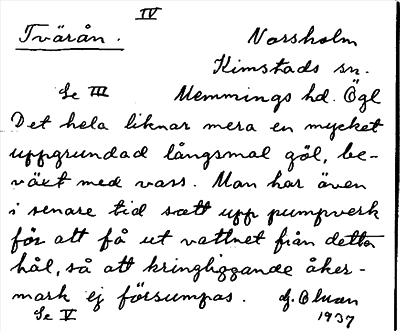 IV
Tvärån. Norsholm
Kimstads sn.
Se III Memmings hd. Ögl
Det hela liknar mera en mycket
uppgrundad långsmal göl, be-
växt med vass. Man har även
i senare tid satt upp pumpverk
för att få ut vattnet från detta
hål, så att kringliggande åker-
mark ej försumpas.
Se V 1937